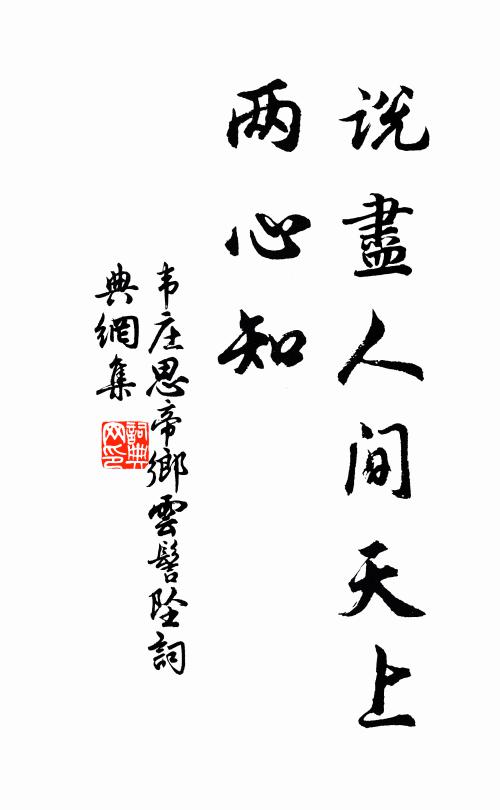 说盡人间天上
两心知
韦庄思帝鄉雲髻坠詞
典網集
詞典
网印